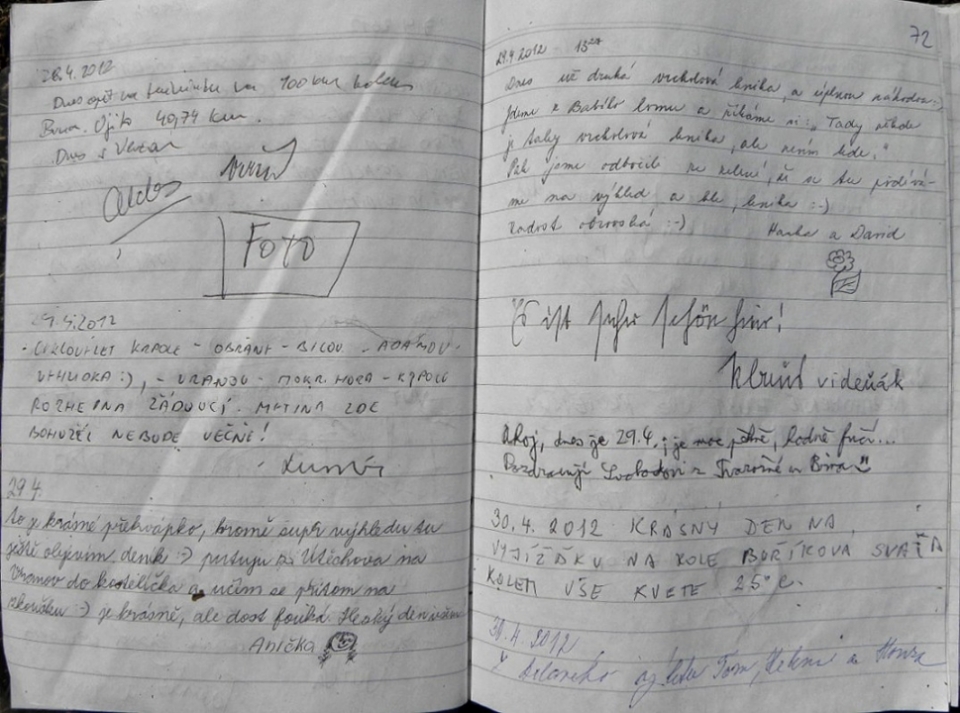 28.4.2012
Dnes opět na tréninku na 100 km kolem
Brna. Ujeto 40,74 km.
Dnes s
FOTO
29.4.2012
- CYKLOVÝLET KRPOLE - OBŘANY - BÍLOV. - ADAMOV -
ÚTĚCHOV :), - VRANOV - MOKR. HORA - KRPOLE
ROZHLEDNA ŽÁDOUCÍ. MÝTINA ZDE
BOHUŽEL NEBUDE VĚČNĚ!
29.4.
to je krásné překvápko, kromě supr výhledu tu
ještě objevím deník :) putuju z Útěchova na
Vranov do kostelíčka a učím se přitom na
zkoušku :) je krásně, ale dost fouká. Hezký den všem
Anička
72
29.4.2012 15
Dnes už druhá vrcholová kniha, a úplnou náhodou :)
Jdeme z Babího lomu a říkáme si: "Tady někde
je taky vrcholová kniha, ale nevím kde."
Pak jsme odbočili ze zelené, že se tu podívá-
me na výhled a hle, kniha :-)
Radost obrovská :-) Hanka a David
Es ist sehr schön hier!
videňák
Ahoj, dnes je 29.4., je moc pěkně, hodně fučí...
Pozdravují Svobodovi z Tvarožné u Brna
30.4. 2012 KRÁSNÝ DEN NA
VYJÍŽĎKU NA KOLE BOŘÍKOVÁ SVAŤA
KOLEM VŠE KVETE 25° C.
30.4.2012
Tom, Helena a Honza